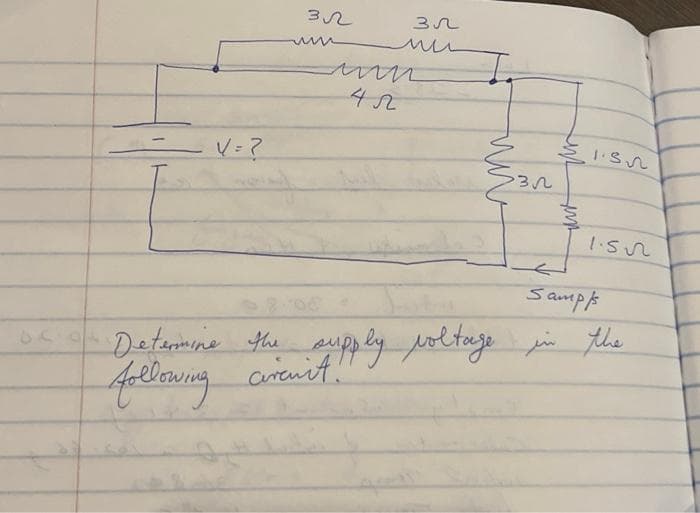 3Ω 3Ω
4Ω
V=?
3Ω
1.5Ω
1.5Ω
5 amps
Determine the supply voltage in the
following circuit.